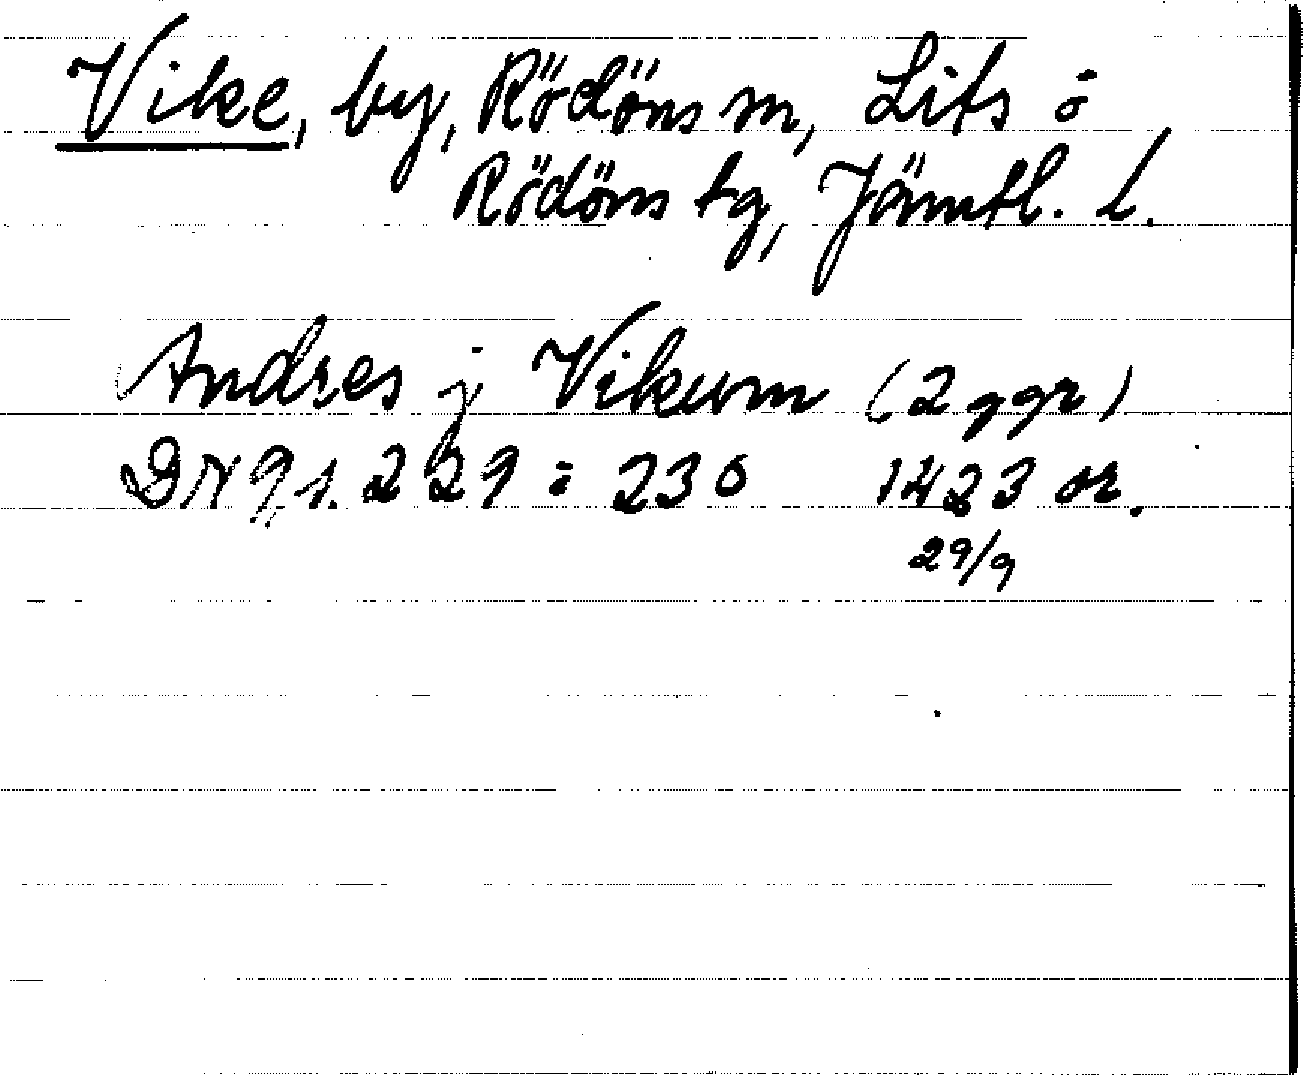 Vike, by, Rödöns sn, Lits o
Rödöns tg, Jämtl. l.
Andres j Vikum (2 ggr)
DN 9 s. 229 o 230 1423 or.
29/9